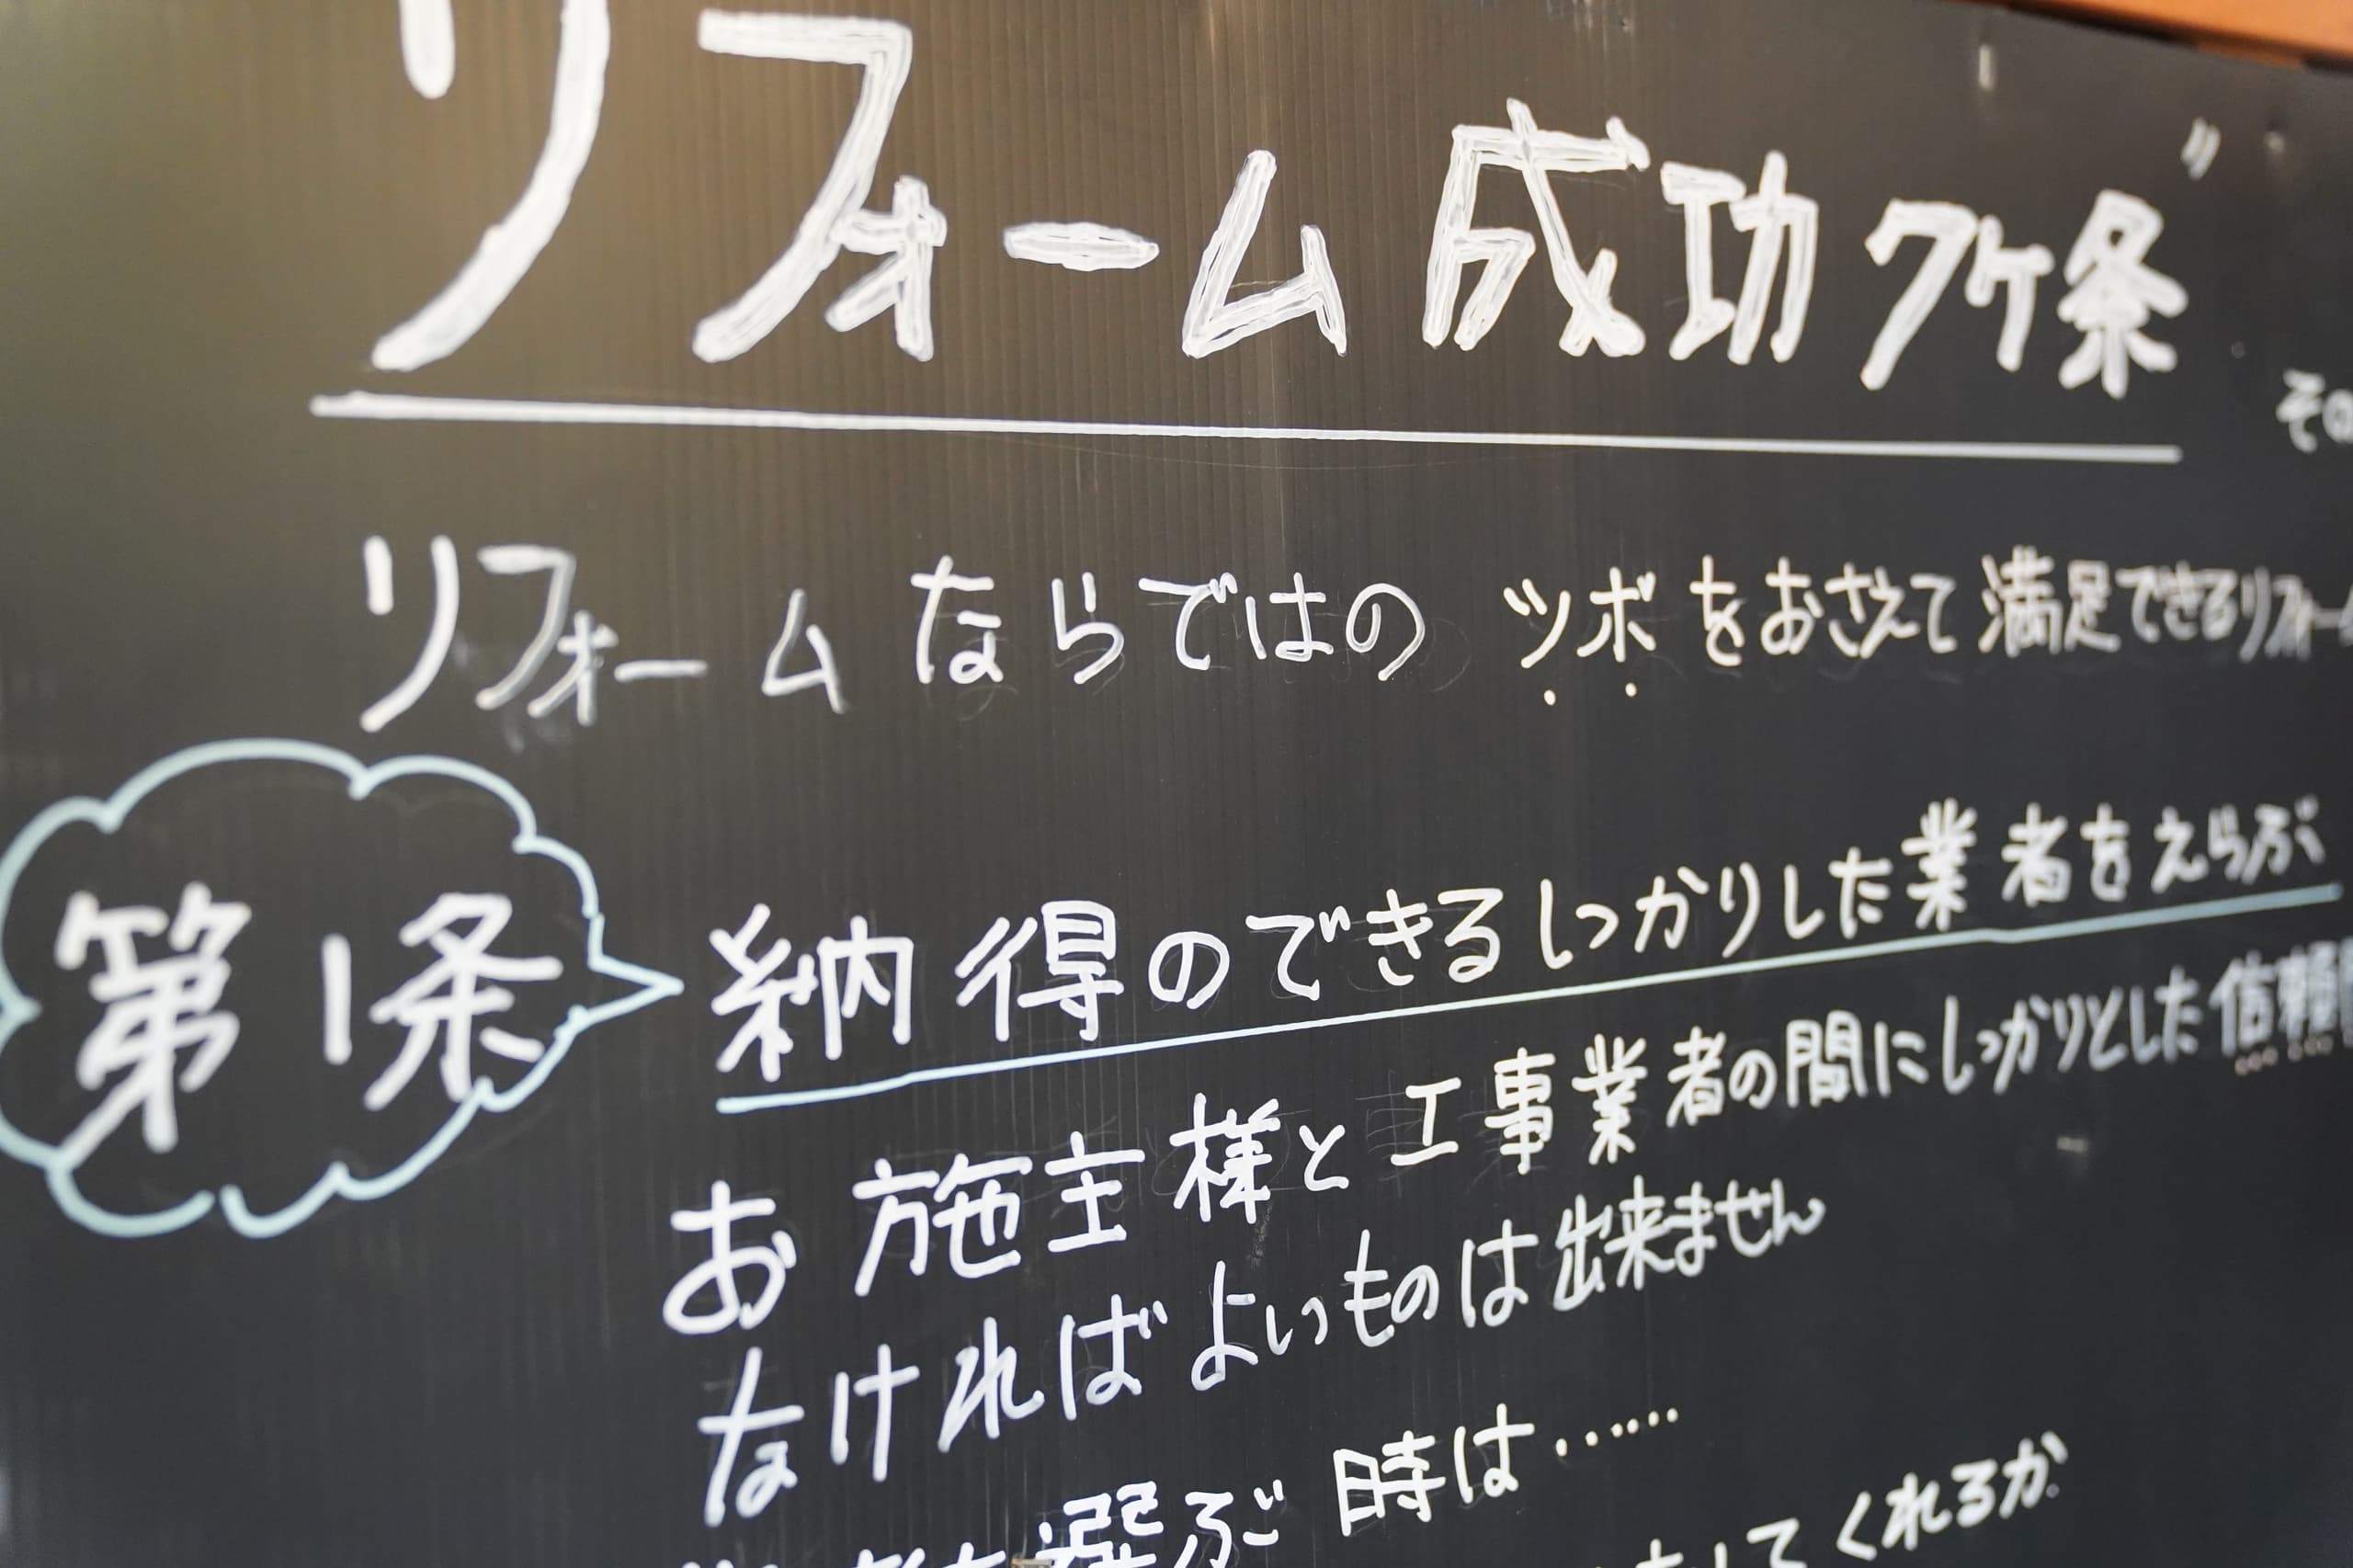 リフォーム成功7ヶ条〃
その
リフォームならではのツボをおさえて満足できるリフォーム
第1条
納得のできるしっかりした業者をえらぶ
お施主様と工事業者の間にしっかりとした信頼
なければよいものは出来ません
を選ぶ時は……
してくれるか